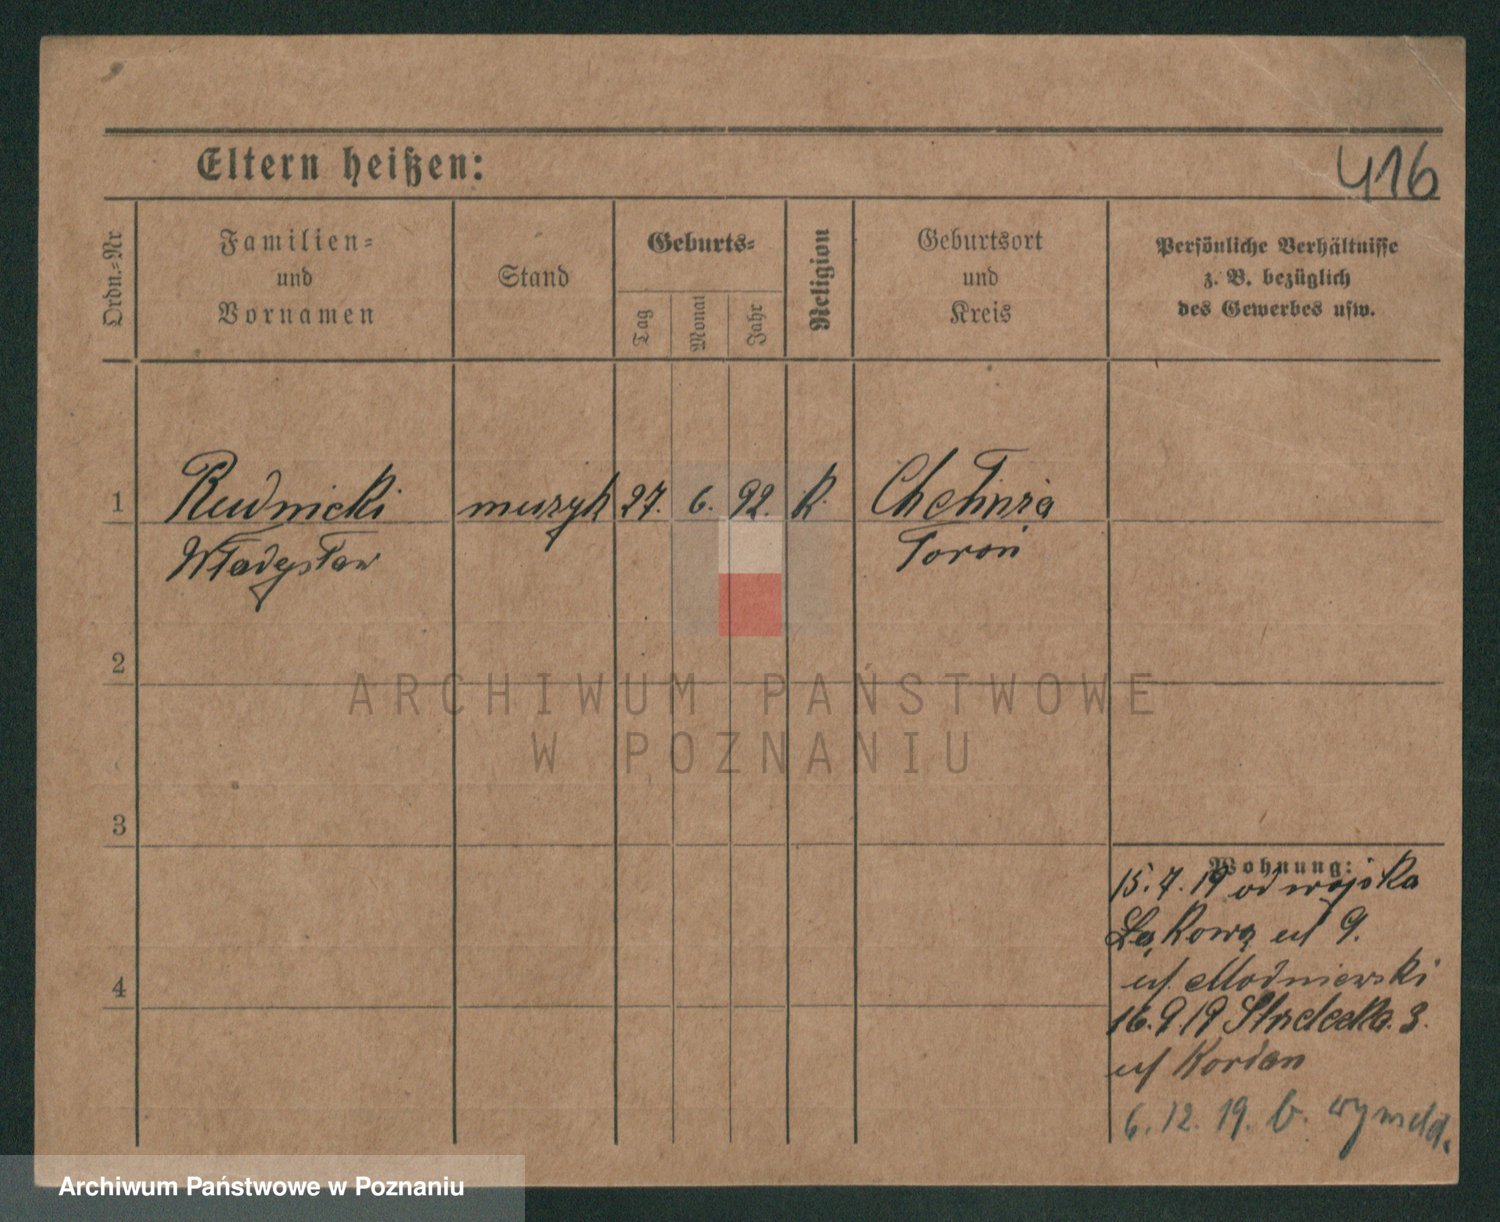 Eltern heißen:
416
Ordn.=Nr
Familien=
und
Vornamen
Stand
Geburts=
Tag
Monat
Jahr
Religion
Geburtsort
und
Kreis
Persönliche Verhältnisse
z. B. bezüglich
des Gewerbes usw.
1
Rudnicki muzyk 27. 6. 92. K. Chełmża
Władysław Toroń
2
ARCHIWUM PAŃSTWOWE
W POZNANIU
3
Wohnung:
15.7.19 od wojska
Łąkowa 9.
Modniewski
4
16.9 19 Strzelecka. 3.
Kordan
6. 12. 19. b. wymeld.
Archiwum Państwowe w Poznaniu